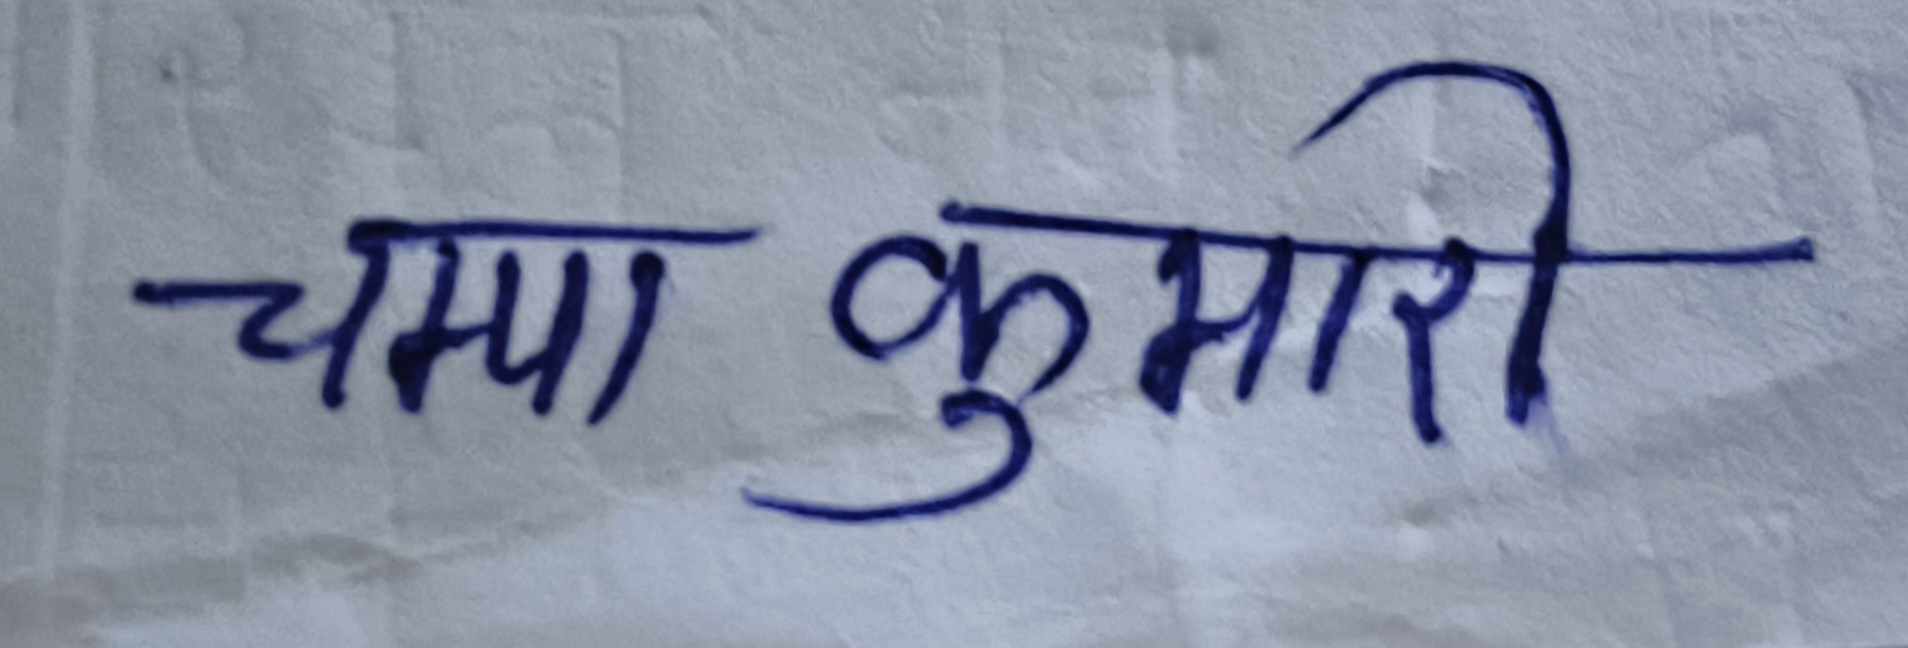 चम्पा कुमारी